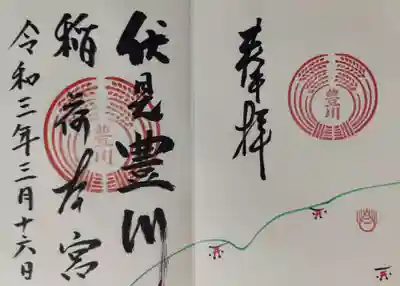 奉拝
豊川
伏見豊川
稲荷本宮
豊川
令和三年三月十六日